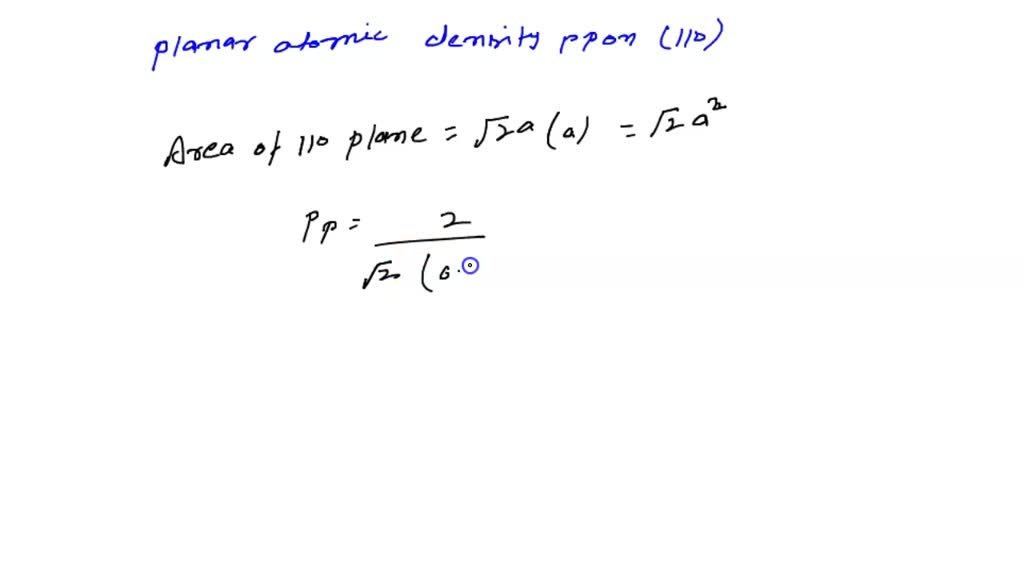 planar atomic density ρp on (110)
Area of 110 plane = √2a (a) = √2 a²
ρp = 2
√2 (0.